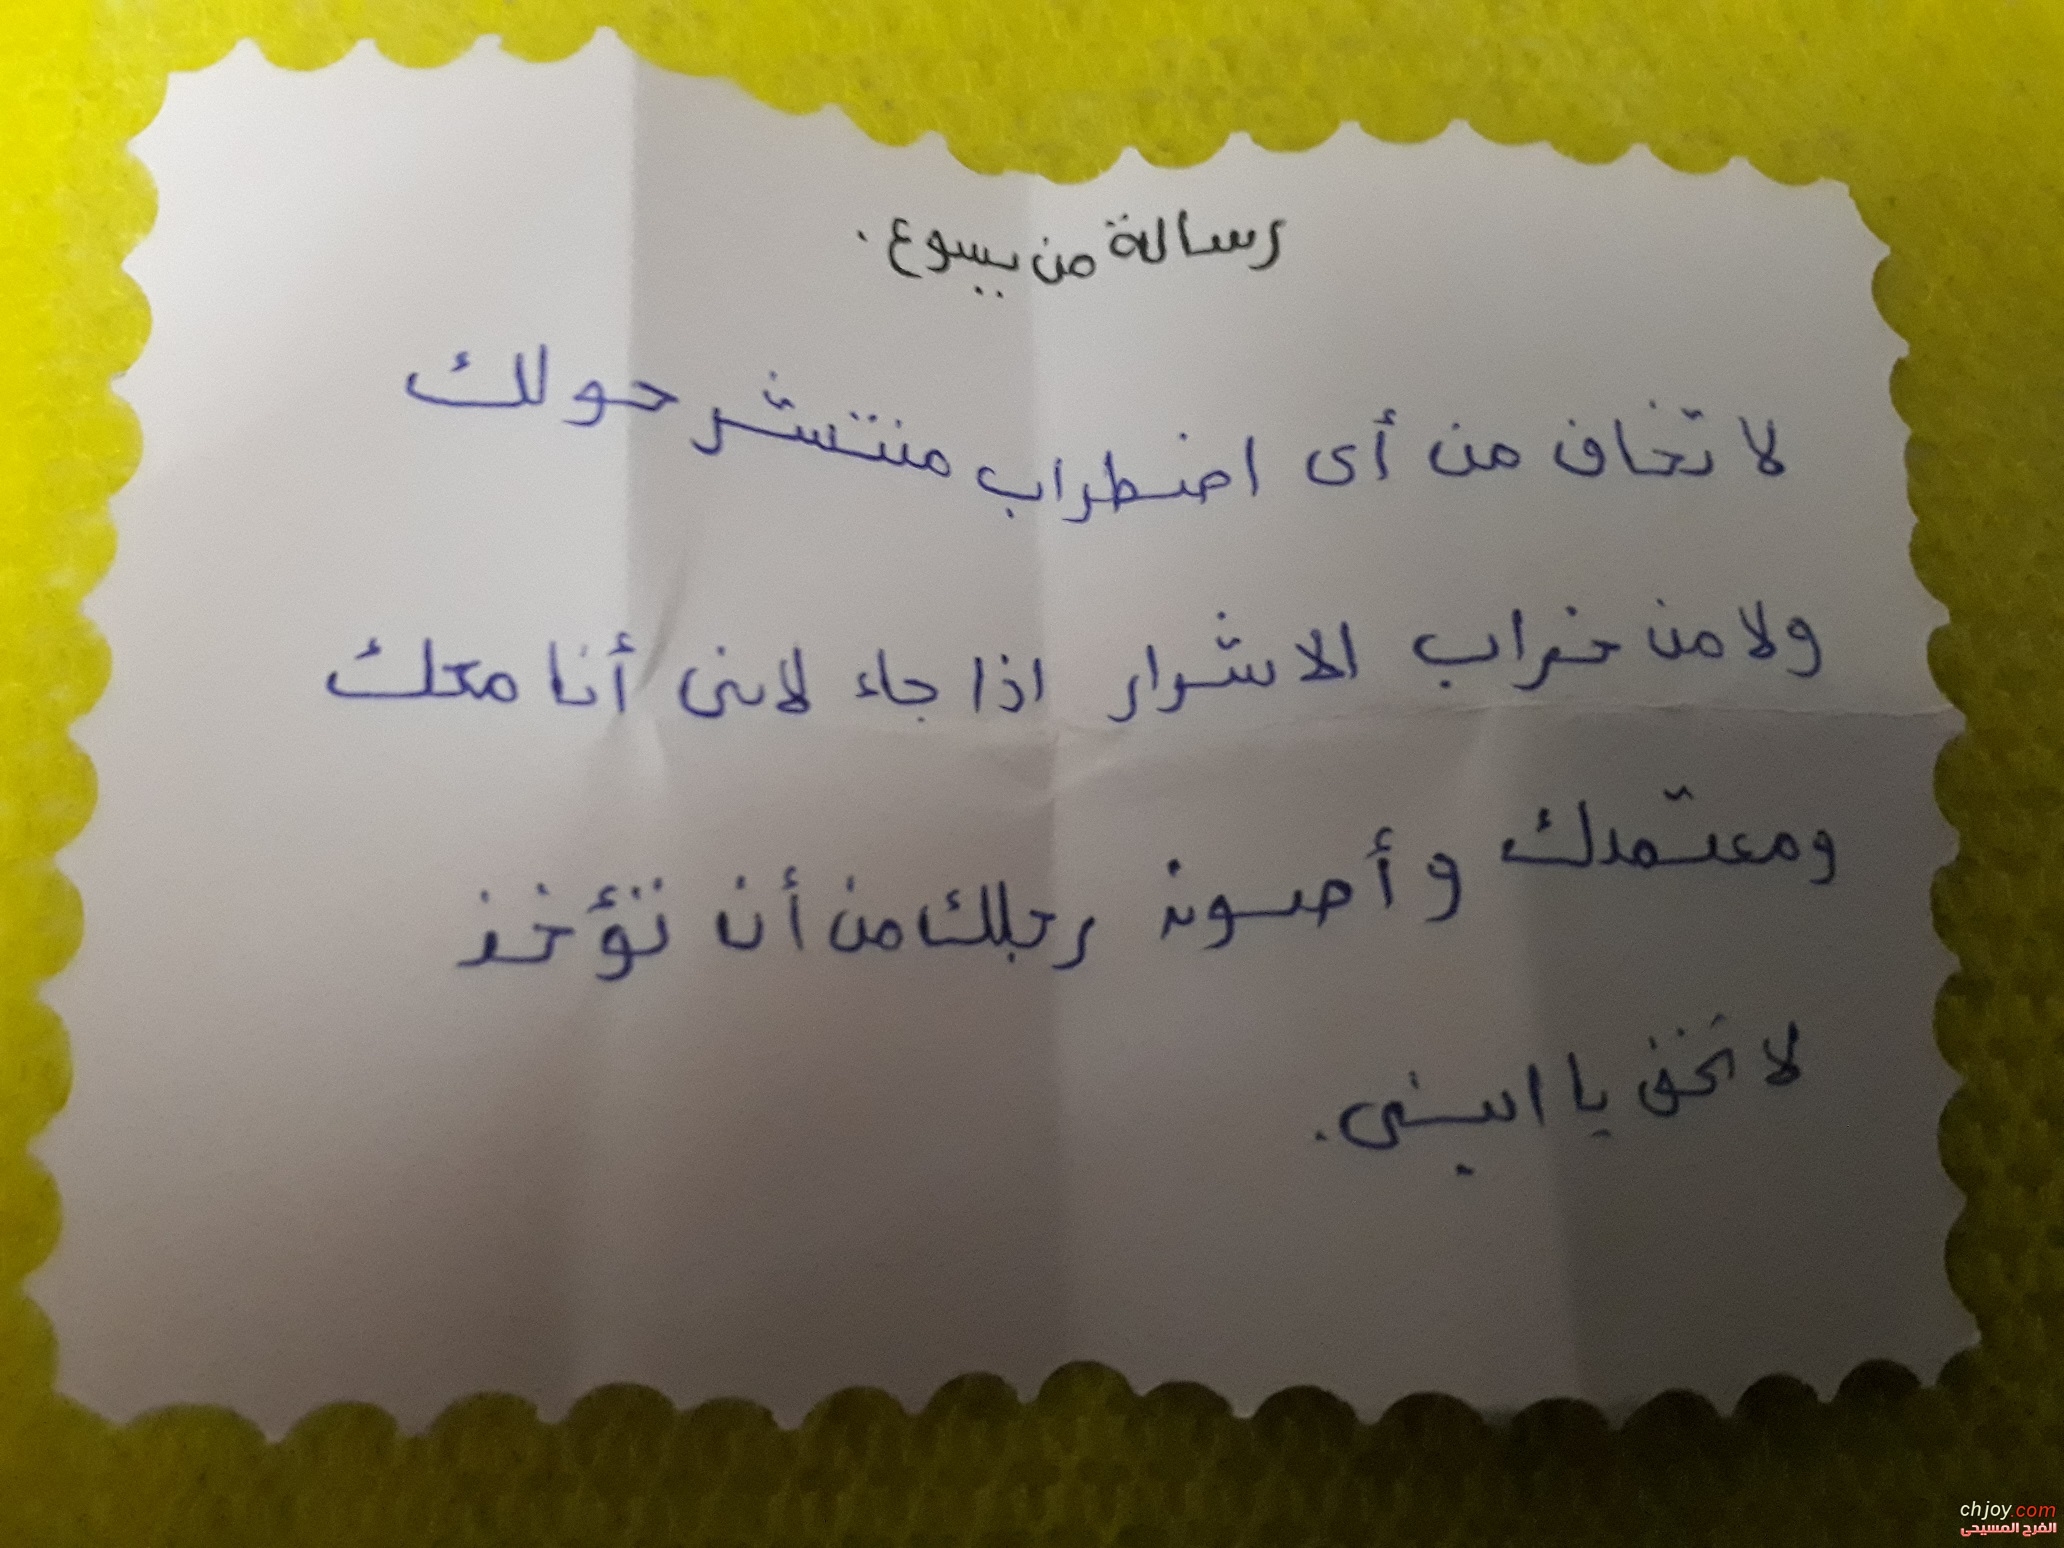 رسالة من يسوع.
لا تخاف من أى اضطراب منتشر حولك
ولا من خراب الاشرار اذا جاء لانى أنا معك
ومعتمدك وأصون رجلك من أن تؤخذ
لا تخف يا ابنى.
chjoy.com
الفرح المسيحى